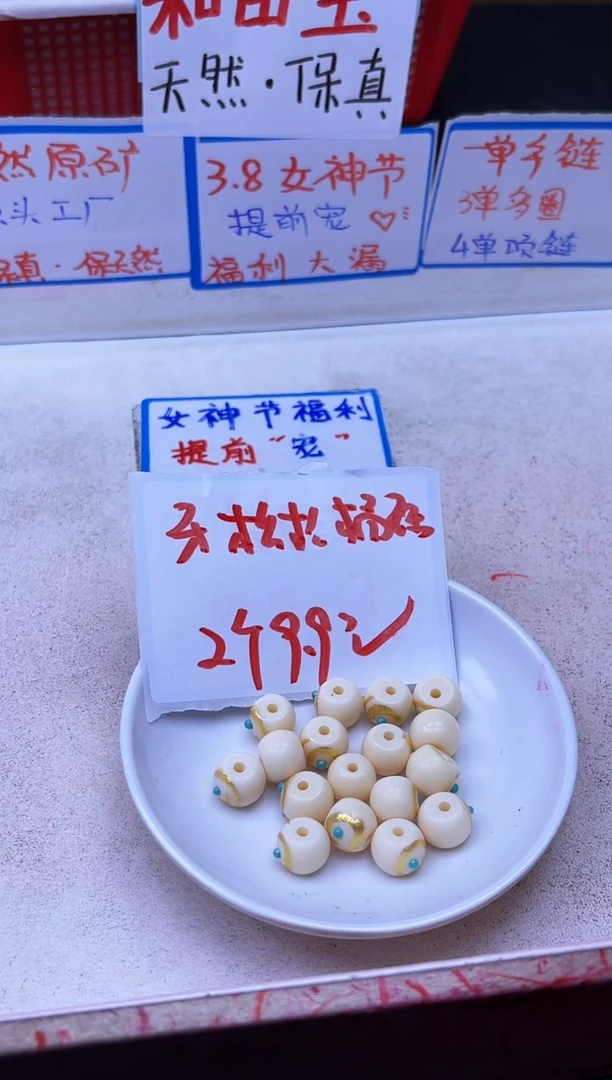 和田玉
天然·保真
然原矿
头工厂
保真·保天然
3.8女神节
提前宠
福利大漏
一单手链
3单多圈
4单项链
女神节福利
提前“宠”